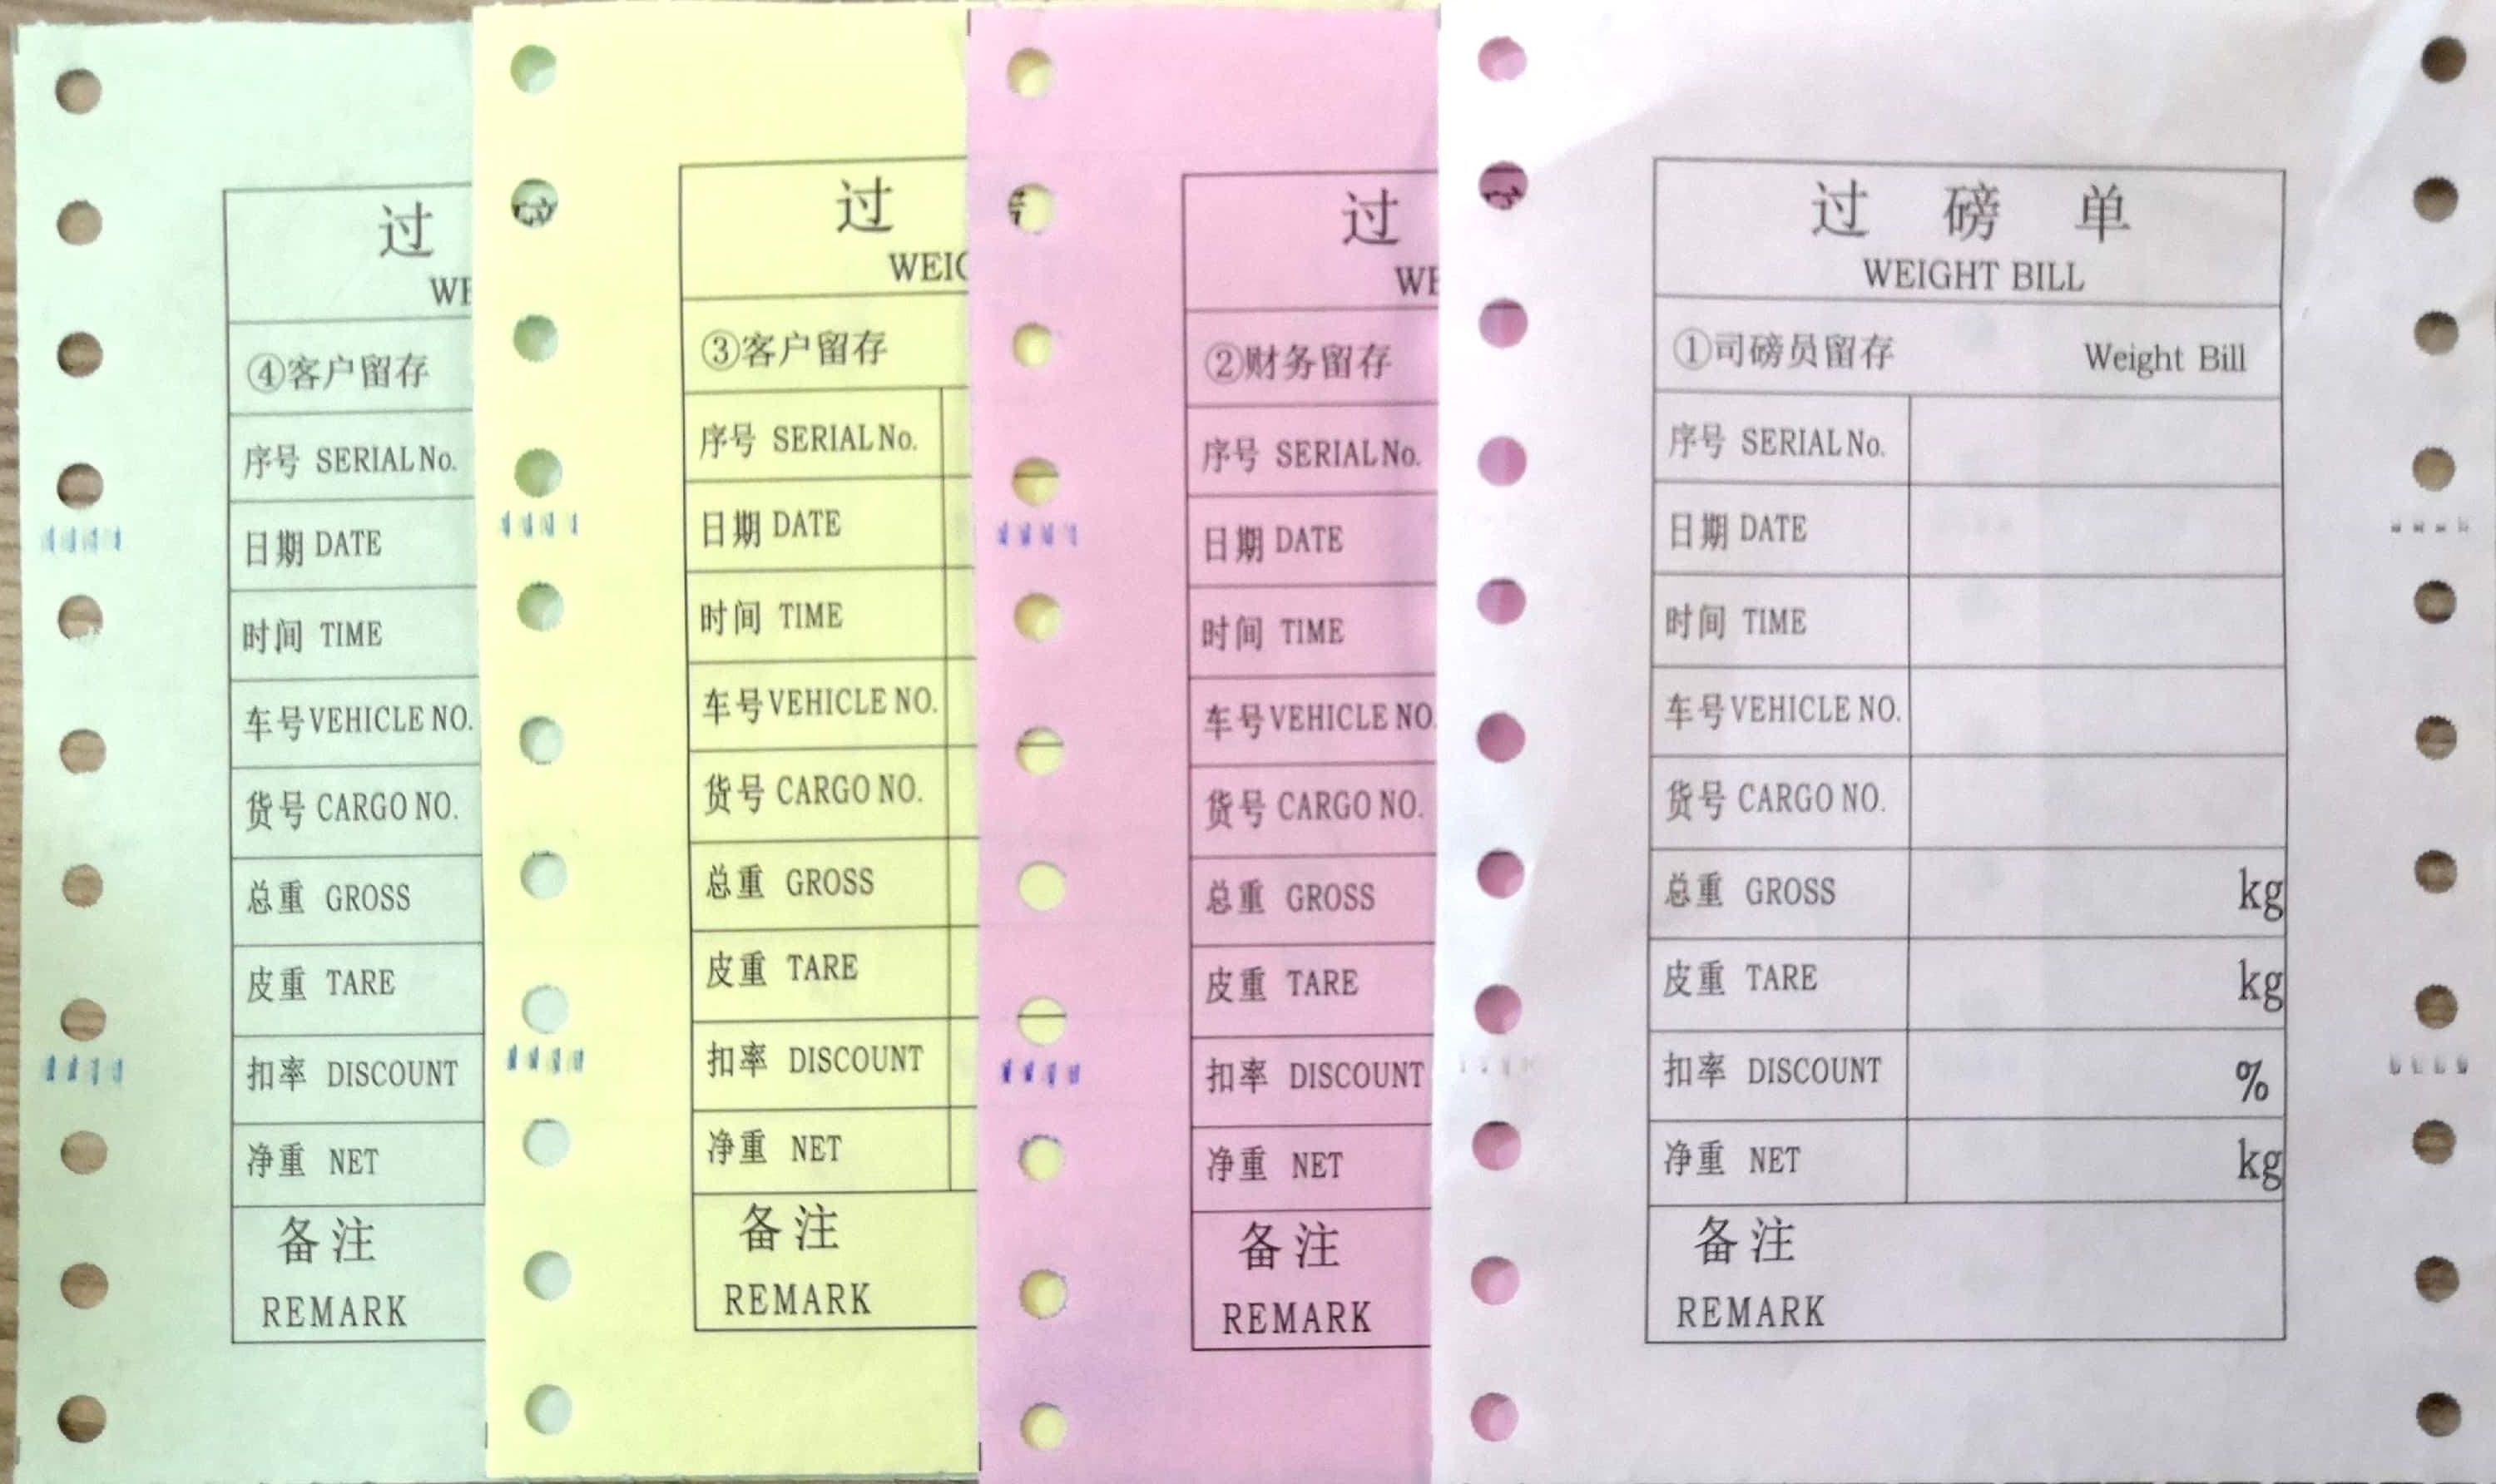 过
WE
④客户留存
序号 SERIAL No.
日期 DATE
时间 TIME
车号 VEHICLE NO.
货号 CARGO NO.
总重 GROSS
皮重 TARE
扣率 DISCOUNT
净重 NET
备注
REMARK
过
WEIG
③客户留存
序号 SERIAL No.
日期 DATE
时间 TIME
车号 VEHICLE NO.
货号 CARGO NO.
总重 GROSS
皮重 TARE
扣率 DISCOUNT
净重 NET
备注
REMARK
过
WE
②财务留存
序号 SERIAL No.
日期 DATE
时间 TIME
车号 VEHICLE NO.
货号 CARGO NO.
总重 GROSS
皮重 TARE
扣率 DISCOUNT
净重 NET
备注
REMARK
过 磅 单
WEIGHT BILL
①司磅员留存 Weight Bill
序号 SERIAL No.
日期 DATE
时间 TIME
车号 VEHICLE NO.
货号 CARGO NO.
总重 GROSS kg
皮重 TARE kg
扣率 DISCOUNT %
净重 NET kg
备注
REMARK